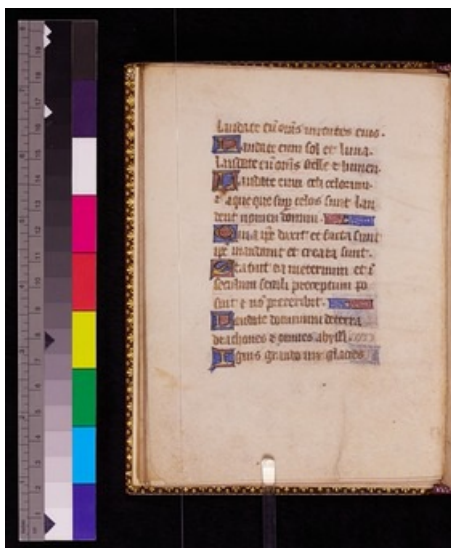 laudate eū om̄s uirtutes eius.
Laudate eum sol et luna.
laudate eū om̄s stelle & lumen.
Laudate eum celi celorum
& aque que sup celos sunt lau
dent nomen domini.
Quia ip̄e dixit et facta sunt
ip̄e mandauit et creata sunt.
Statuit ea in eternum et ī
seculum seculi preceptum po
suit & nō preteribit.
Laudate dominum de terra
drachones & omnes abyssi.
Ignis grando nix glacies